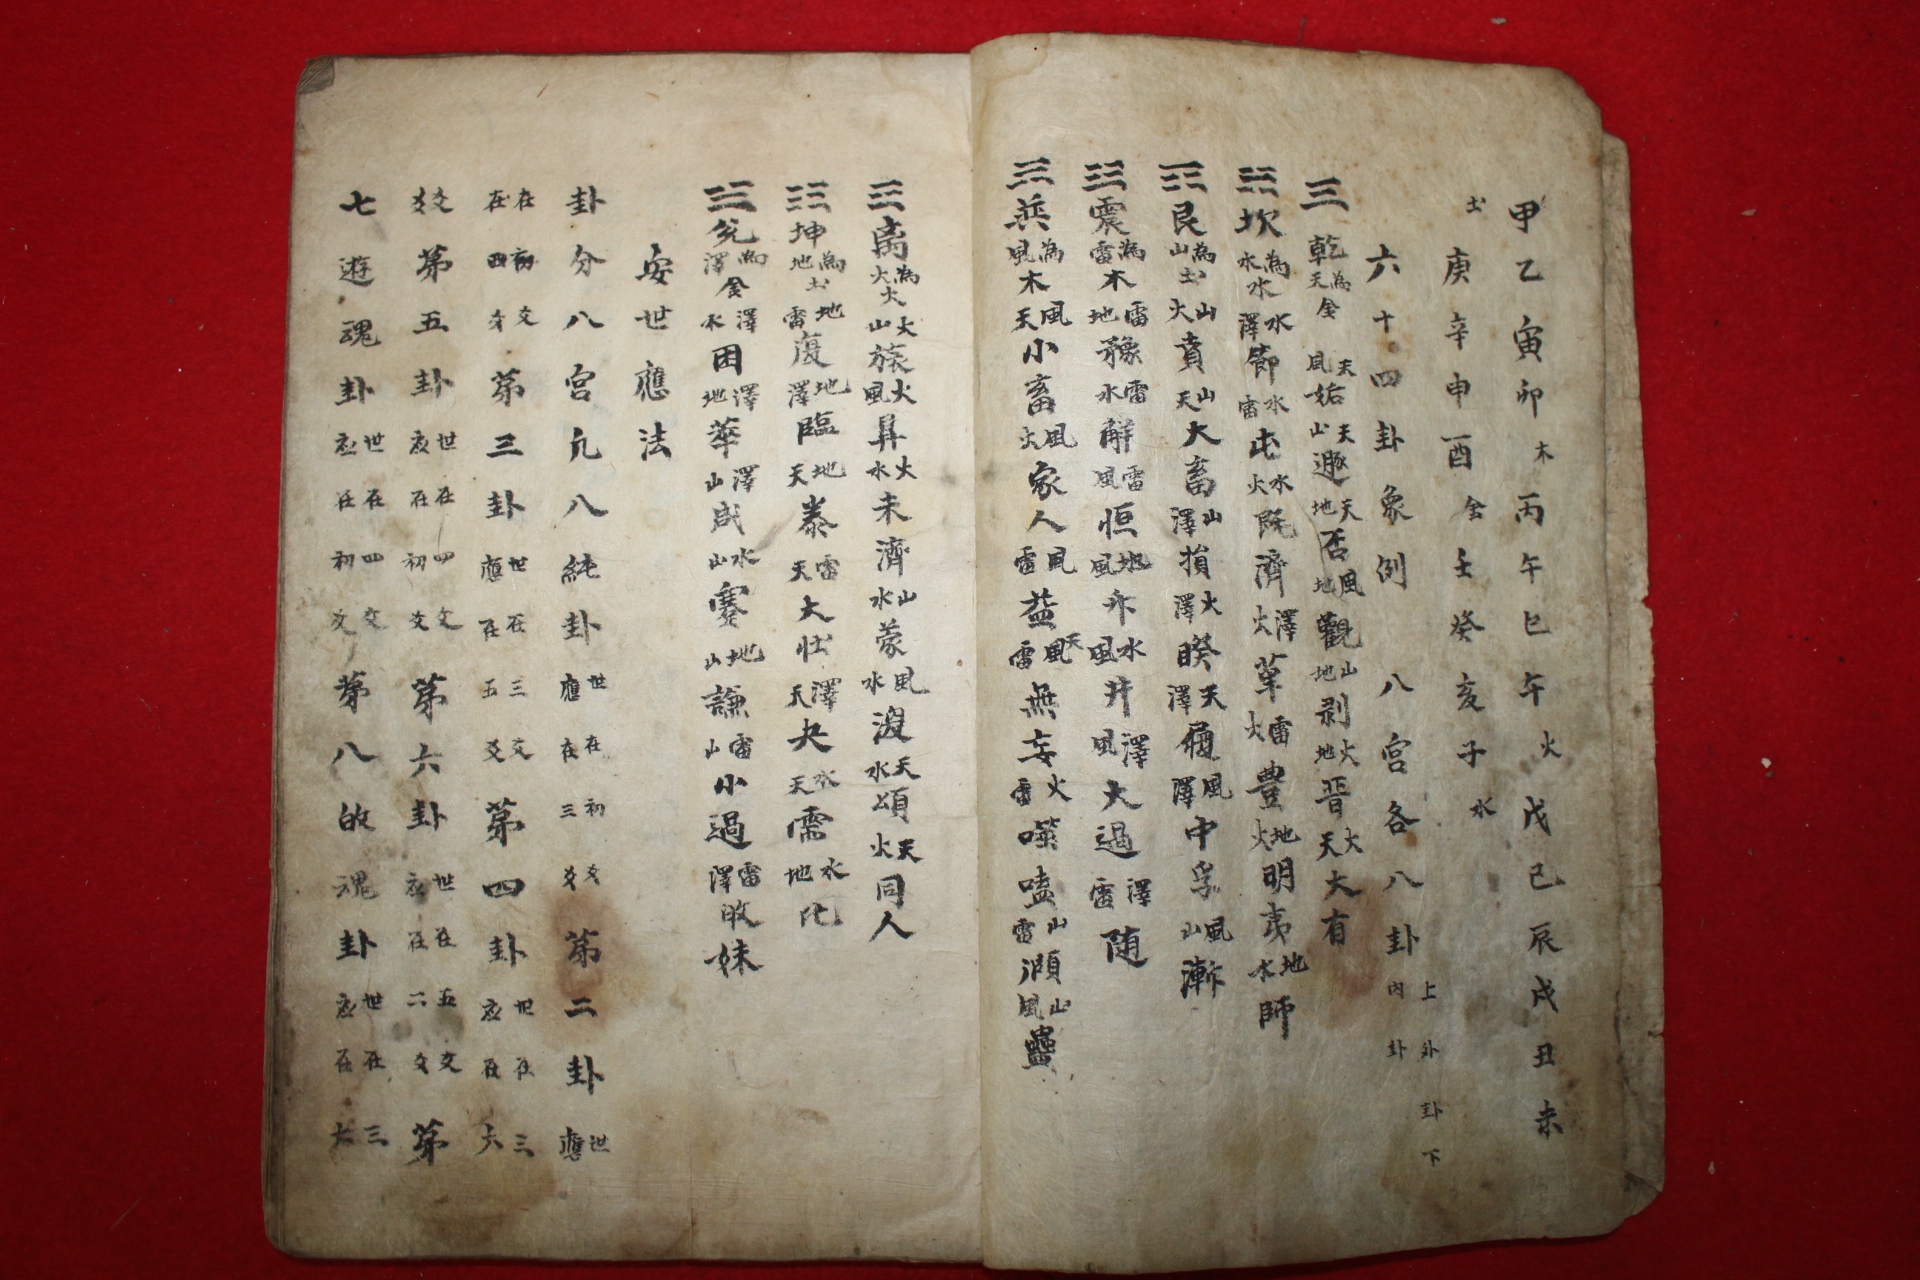 甲乙寅卯木丙午巳午火戊己辰戌丑未
土庚辛申酉金壬癸亥子水
六十四卦象例 八宮各八卦上外卦下內卦
☰乾為天金天風姤天山遯天地否風地觀山地剝火地晋火天大有
☵坎為水水水澤節水雷屯水火既濟澤火革雷火豊地火明夷地水師
☶艮為山土山火賁山天大畜山澤損火澤睽天澤履風澤中孚風山漸
☳震為雷木雷地豫雷水解雷風恒地風升水風井澤風大過澤雷随
☴巽為風木風天小畜風火家人風雷益天雷無妄火雷噬嗑山雷頤山風蠱
☲離為火火火山旅火風鼎火水未濟山水蒙風水渙天水頌天火同人
☷坤為地土地雷復地澤臨地天泰雷天大壮澤天夬水天需水地比
☱兌為澤金澤水困澤地萃澤山咸水山蹇地山謙雷山小過雷澤㱕妹
安世應法
卦分八宮凢八純卦世在初爻應在三爻苐二卦世應
在初爻在四爻苐三卦世在三爻應在五爻苐四卦世在三應在六
爻爻苐五卦世在四爻應在初爻苐六卦世在五爻應在二爻苐
七遊魂卦世在四爻應在初爻苐八㱕魂卦世在三應在六